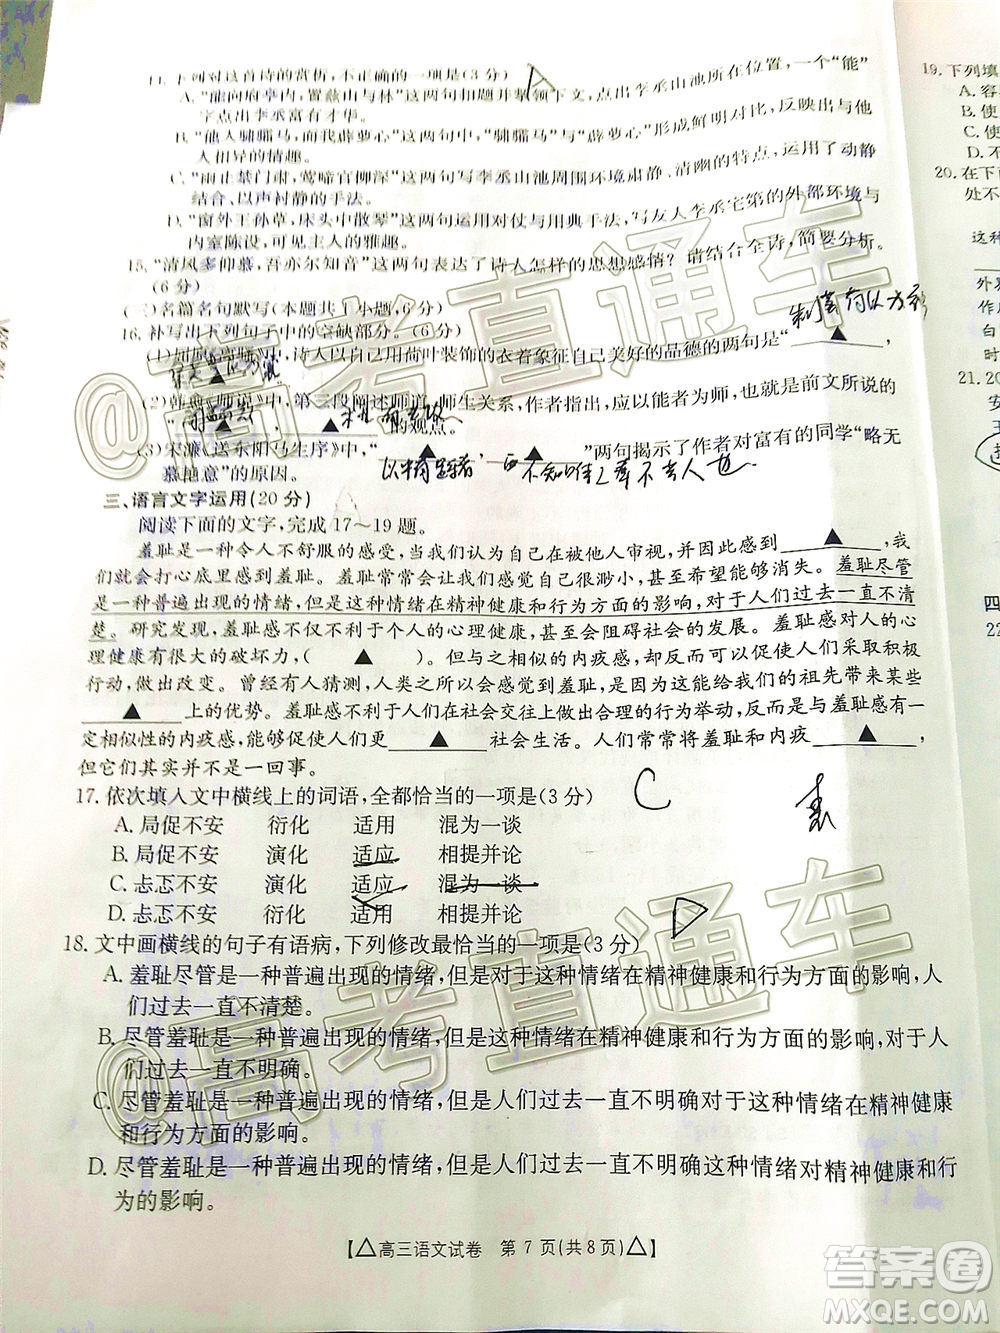 14.下列对这首诗的赏析,不正确的一项是(3分)
A.“能向府亭内,置兹山与林”这两句扣题并掌领下文,点出李丞山池所在位置,一个“能”
字点出李丞富有才华。
B.“他人骕骦马,而我薜萝心”这两句中,“骕骦马”与“薜萝心”形成鲜明对比,表达与他
人相异的情趣。
C.“雨止禁门肃,莺啼官柳深”这两句写李丞山池周围环境肃静、清幽的特点,运用了动静
结合、以声衬静的手法。
D.“窗外王孙草,床头中散琴”这两句运用对仗与用典手法,写友人李丞宅第的外部环境与
内室陈设,可见主人的雅趣。
15.“清风多仰慕,吾亦尔知音”这两句表达了诗人怎样的思想感情?请结合全诗,简要分析。
(6分)
(三)名篇名句默写(本题共1小题,6分)
16.补写出下列句子中的空缺部分。(6分)
(1)屈原《离骚》中,诗人以自己用荷叶装饰的衣着象征自己美好的品德的两句是“ ▲ ,
▲ ”。
(2)韩愈《师说》中,第三段阐述师道、师生关系,作者指出,应以能者为师,就是前文所说的
“ ▲ , ▲ ”的观点。
(3)宋濂《送东阳马生序》中,“ ▲ , ▲ ”两句揭示了作者对富有的同学“略无
慕艳意”的原因。
三、语言文字运用(20分)
阅读下面的文字,完成17~19题。
羞耻是一种令人不舒服的感受,当我们设想自己正在被他人审视,并因此感到 ▲ ,我
们就会打心底里感到羞耻。羞耻常常会让我们感觉自己很渺小,甚至希望能够消失。羞耻尽管
是一种普遍出现的情绪,但是这种情绪在精神健康和行为方面的影响,对于人们过去一直不清
楚。研究发现,羞耻感不仅不利于个人的心理健康,甚至会阻碍社会的发展。羞耻感对人的心
理健康有很大的破坏力,( ▲ )。但与之相似的内疚感,却能促使人们采取积极
行动,做出改变。曾经有人猜测,人类之所以感到羞耻,是因为这种情绪给我们的祖先带来某些
▲ 上的优势。羞耻感不利于人们在社会交往上做出合理的行为举动,然而,与羞耻感有一
定相似性的内疚感,能够促使人们更 ▲ 社会生活。人们常常将羞耻和内疚 ▲ ,
但它们其实并不是一回事。
17.依次填入文中横线上的词语,全都恰当的一项是(3分) C
A.局促不安 衍化 适用 混为一谈
B.局促不安 演化 适应 相提并论
C.忐忑不安 演化 适应 混为一谈
D.忐忑不安 衍化 适用 相提并论
18.文中画横线的句子有语病,下列修改最恰当的一项是(3分) D
A.羞耻尽管是一种普遍出现的情绪,但是关于这种情绪在精神健康和行为方面的影响,人
们过去一直不清楚。
B.尽管羞耻是一种普遍出现的情绪,但是这种情绪在精神健康和行为方面的影响,对于人
们过去一直不明确。
C.尽管羞耻是一种普遍出现的情绪,但是人们过去一直不明确对于这种情绪在精神健康
和行为方面的影响。
D.尽管羞耻是一种普遍出现的情绪,但是人们过去一直不清楚这种情绪对精神健康和行
为的影响。
【△高三语文试卷 第7页(共8页)△】
19.下列填
A.容
B.使
C.使
D.不
20.在下
处不
这种
外
时
21.20
安
四
22
@高考直通车
@高考直通车
答案圈
MXQE.COM